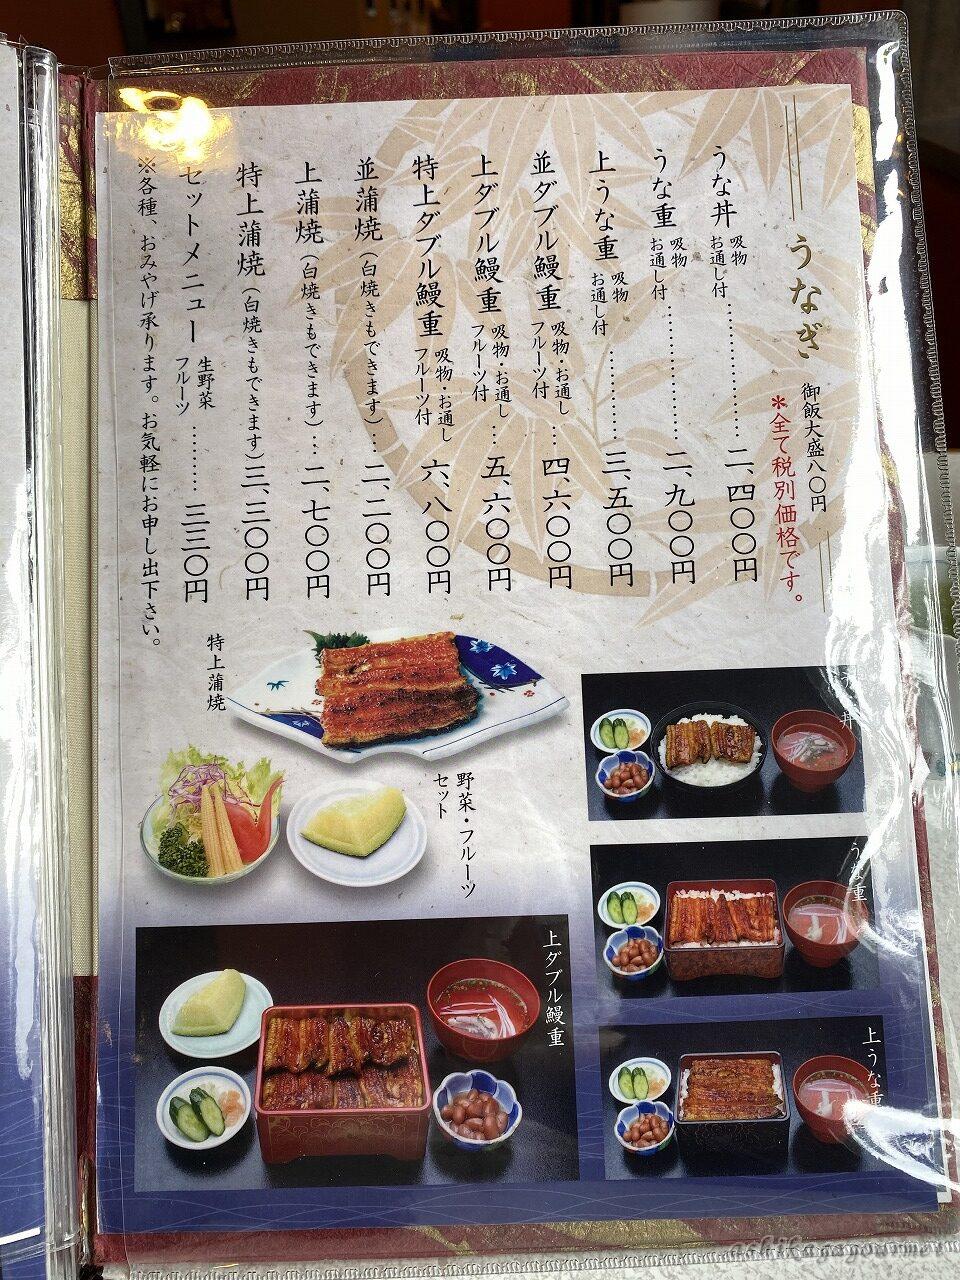 うなぎ
御飯大盛八〇円
＊全て税別価格です。
うな丼 吸物 お通し付 ………… 二、四〇〇円
うな重 吸物 お通し付 ………… 二、九〇〇円
上うな重 吸物 お通し付 ………… 三、五〇〇円
並ダブル鰻重 吸物・お通し フルーツ付 … 四、六〇〇円
上ダブル鰻重 吸物・お通し フルーツ付 … 五、六〇〇円
特上ダブル鰻重 吸物・お通し フルーツ付 六、八〇〇円
並蒲焼(白焼きもできます)… 二、二〇〇円
上蒲焼(白焼きもできます)… 二、七〇〇円
特上蒲焼(白焼きもできます)三、三〇〇円
セットメニュー 生野菜 フルーツ ………… 三三〇円
※各種、おみやげ承ります。お気軽にお申し出下さい。
特上蒲焼
野菜・フルーツ
セット
うな丼
うな重
上うな重
上ダブル鰻重